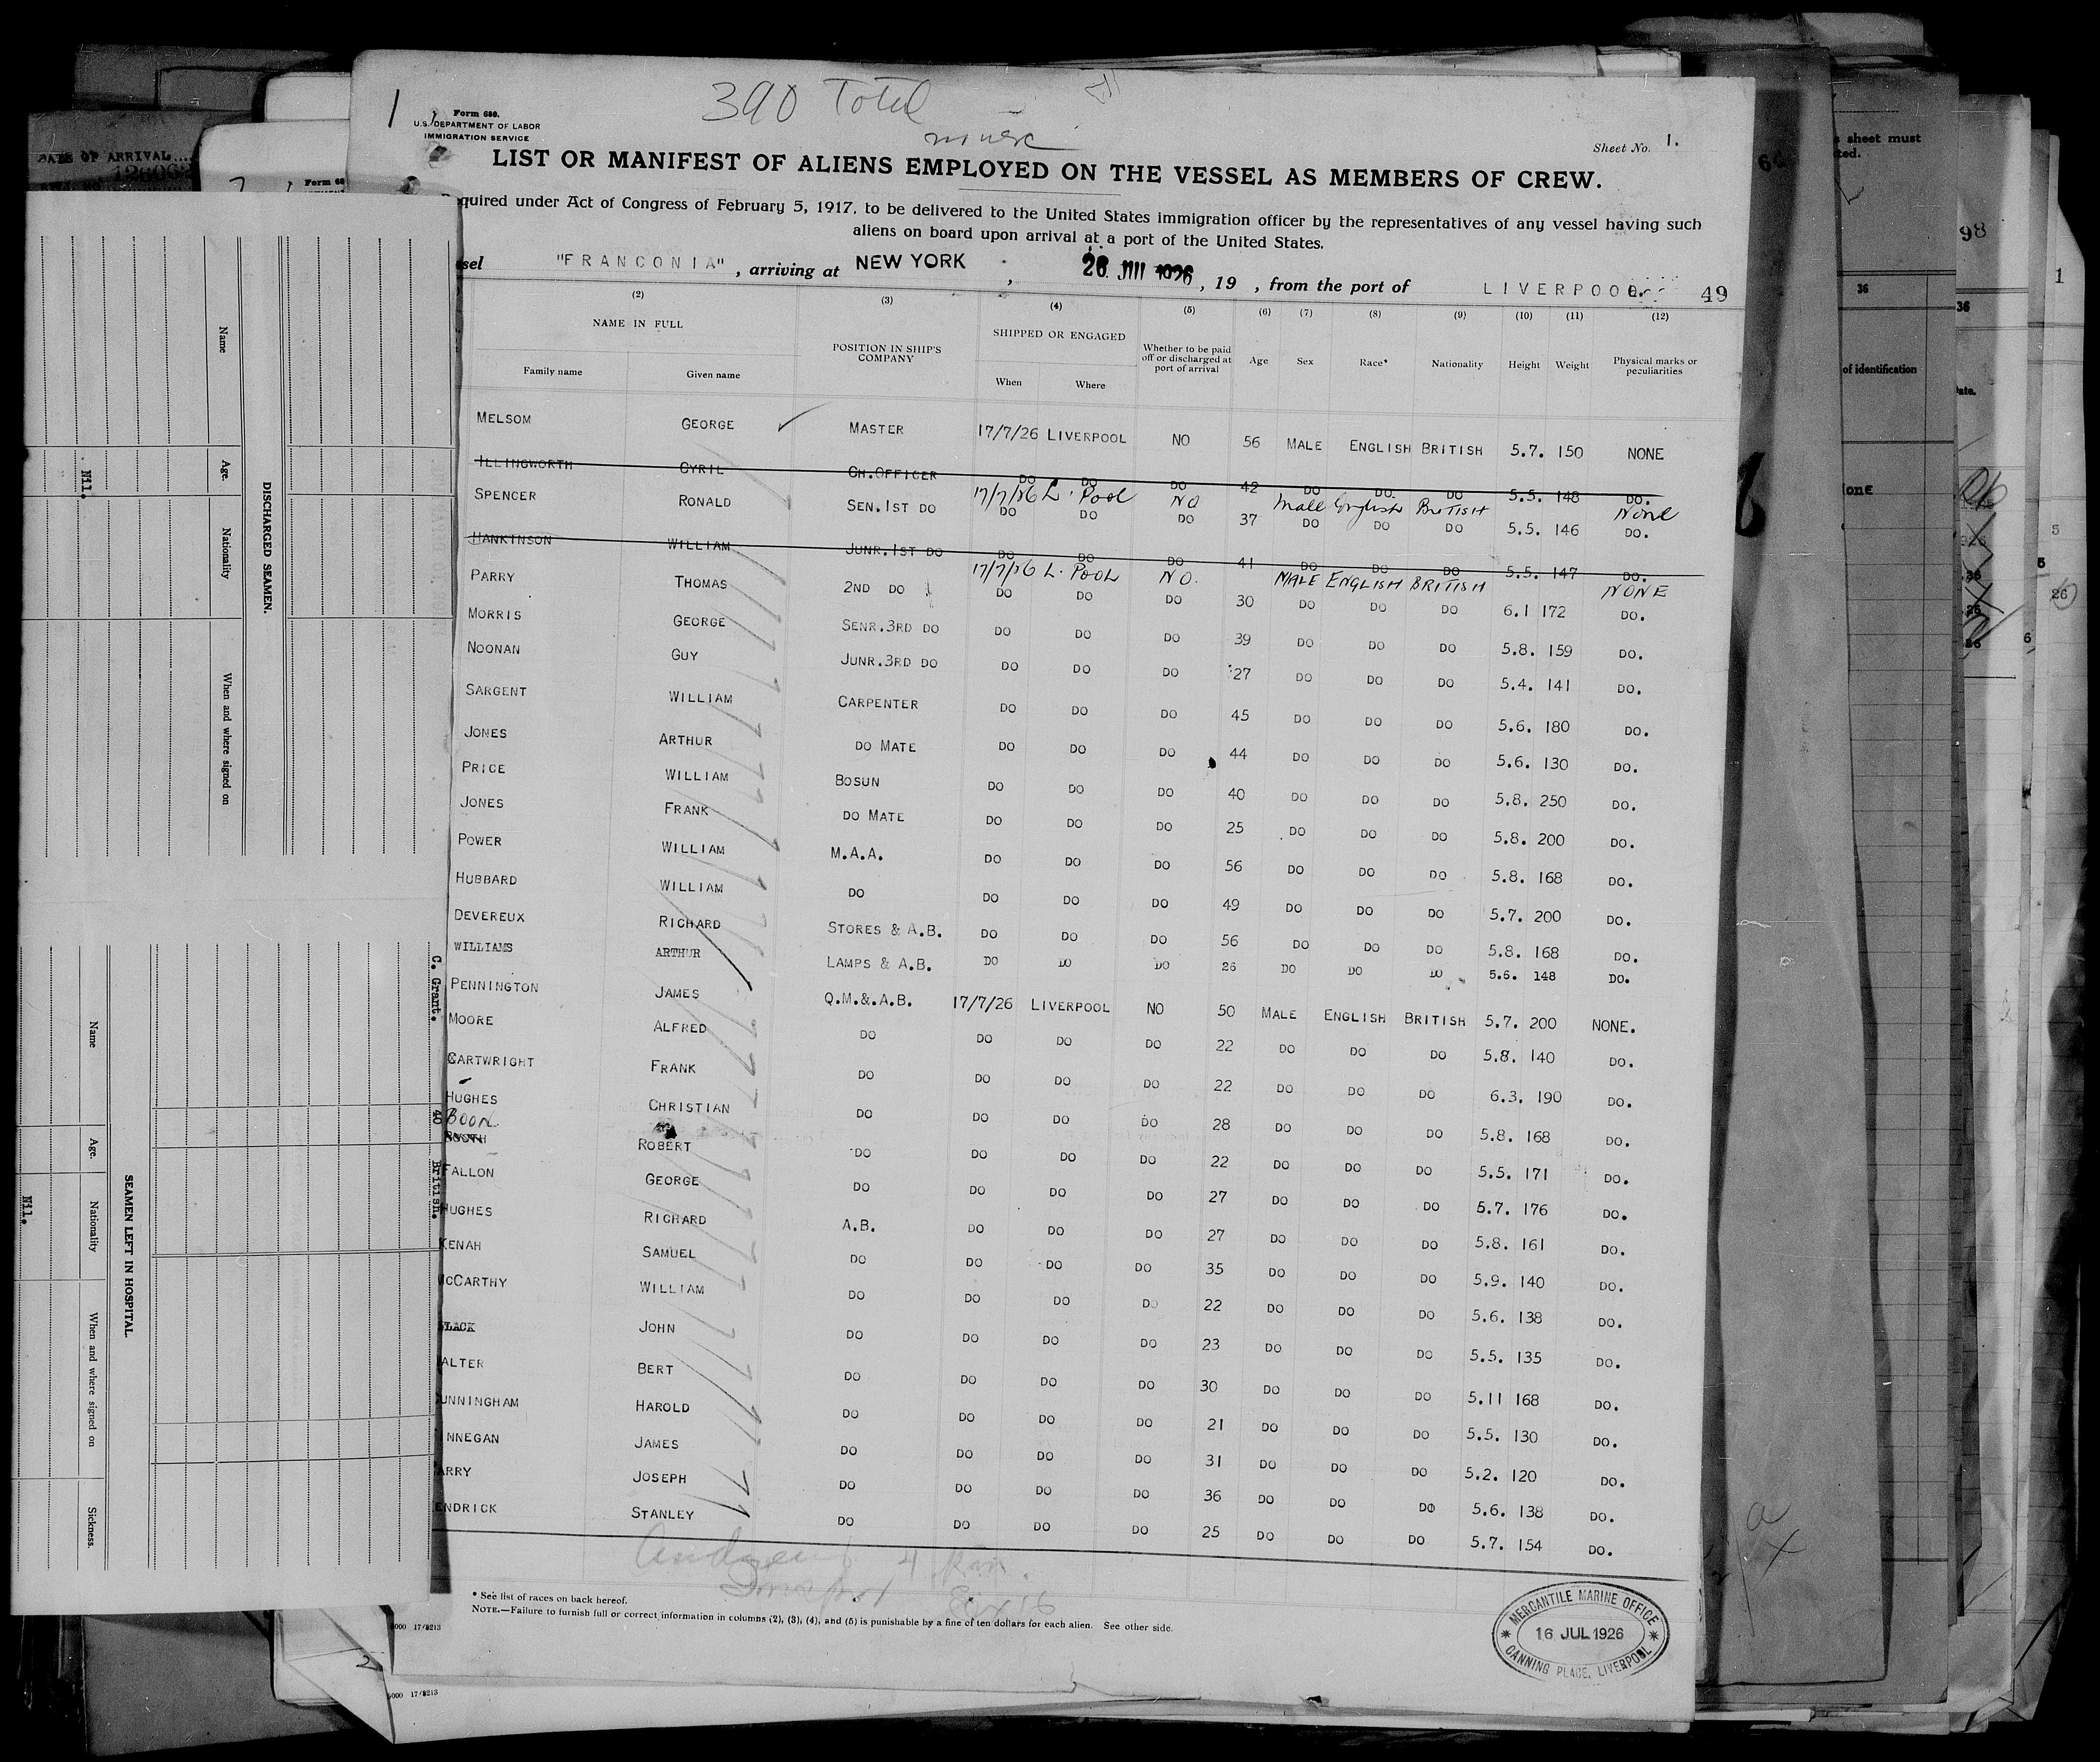 390 Total
1
Form 680.
U.S. DEPARTMENT OF LABOR
IMMIGRATION SERVICE
Sheet No. 1.
LIST OR MANIFEST OF ALIENS EMPLOYED ON THE VESSEL AS MEMBERS OF CREW.
quired under Act of Congress of February 5, 1917, to be delivered to the United States immigration officer by the representatives of any vessel having such
aliens on board upon arrival at a port of the United States.
sel "FRANCONIA", arriving at NEW YORK, 26 JUL 1926, 19 , from the port of LIVERPOOL. 49
(2) (3) (4) (5) (6) (7) (8) (9) (10) (11) (12)
NAME IN FULL POSITION IN SHIP'S COMPANY SHIPPED OR ENGAGED Whether to be paid off or discharged at port of arrival Age Sex Race* Nationality Height Weight Physical marks or peculiarities
Family name Given name When Where
MELSOM GEORGE MASTER 17/7/26 LIVERPOOL NO 56 MALE ENGLISH BRITISH 5.7. 150 NONE
ILLINGWORTH CYRIL CH.OFFICER DO DO DO 42 DO DO DO 5.5. 148 DO.
17/7/26 L.Pool NO Male English British None
SPENCER RONALD SEN.1ST DO DO DO DO 37 DO DO DO 5.5. 146 DO.
HANKINSON WILLIAM JUNR.1ST DO DO DO DO 41 DO DO DO 5.5. 147 DO.
17/7/26 L.POOL NO. MALE ENGLISH BRITISH NONE
PARRY THOMAS 2ND DO DO DO DO 30 DO DO DO 6.1 172 DO.
MORRIS GEORGE SENR.3RD DO DO DO DO 39 DO DO DO 5.8. 159 DO.
NOONAN GUY JUNR.3RD DO DO DO DO 27 DO DO DO 5.4. 141 DO.
SARGENT WILLIAM CARPENTER DO DO DO 45 DO DO DO 5.6. 180 DO.
JONES ARTHUR DO MATE DO DO DO 44 DO DO DO 5.6. 130 DO.
PRICE WILLIAM BOSUN DO DO DO 40 DO DO DO 5.8. 250 DO.
JONES FRANK DO MATE DO DO DO 25 DO DO DO 5.8. 200 DO.
POWER WILLIAM M.A.A. DO DO DO 56 DO DO DO 5.8. 168 DO.
HUBBARD WILLIAM DO DO DO DO 49 DO DO DO 5.7. 200 DO.
DEVEREUX RICHARD STORES & A.B. DO DO DO 56 DO DO DO 5.8. 168 DO.
WILLIAMS ARTHUR LAMPS & A.B. DO DO DO 26 DO DO DO 5.6. 148 DO.
PENNINGTON JAMES Q.M.&.A.B. 17/7/26 LIVERPOOL NO 50 MALE ENGLISH BRITISH 5.7. 200 NONE.
MOORE ALFRED DO DO DO DO 22 DO DO DO 5.8. 140 DO.
CARTWRIGHT FRANK DO DO DO DO 22 DO DO DO 6.3. 190 DO.
HUGHES CHRISTIAN DO DO DO DO 28 DO DO DO 5.8. 168 DO.
BOON ROBERT DO DO DO DO 22 DO DO DO 5.5. 171 DO.
FALLON GEORGE DO DO DO DO 27 DO DO DO 5.7. 176 DO.
HUGHES RICHARD A.B. DO DO DO 27 DO DO DO 5.8. 161 DO.
KENAH SAMUEL DO DO DO DO 35 DO DO DO 5.9. 140 DO.
McCARTHY WILLIAM DO DO DO DO 22 DO DO DO 5.6. 138 DO.
BLACK JOHN DO DO DO DO 23 DO DO DO 5.5. 135 DO.
ALTER BERT DO DO DO DO 30 DO DO DO 5.11 168 DO.
UNNINGHAM HAROLD DO DO DO DO 21 DO DO DO 5.5. 130 DO.
NNEGAN JAMES DO DO DO DO 31 DO DO DO 5.2. 120 DO.
ARRY JOSEPH DO DO DO DO 36 DO DO DO 5.6. 138 DO.
ENDRICK STANLEY DO DO DO DO 25 DO DO DO 5.7. 154 DO.
* See list of races on back hereof.
NOTE.—Failure to furnish full or correct information in columns (2), (3), (4), and (5) is punishable by a fine of ten dollars for each alien. See other side.
5000 17/8213
5000 17/8213
MERCANTILE MARINE OFFICE
16 JUL 1926
CANNING PLACE, LIVERPOOL
DATE OF ARRIVAL
Form 68
DISCHARGED SEAMEN.
Name Age. Nationality When and where signed on
Nil.
SEAMEN LEFT IN HOSPITAL
Name Age. Nationality When and where signed on Sickness.
Nil.
C. Grant. 40 British.
s sheet must
ted.
36
of identification
one
98
36
ate.
1
5
6
26